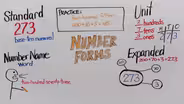 Standard
273
base-ten numerals
PRACTICE:
Unit
2 hundreds
7 tens
3 ones
273
NUMBER
FORMS
Number Name
word
two hundred seventy-three
Expanded
200+70+3=273